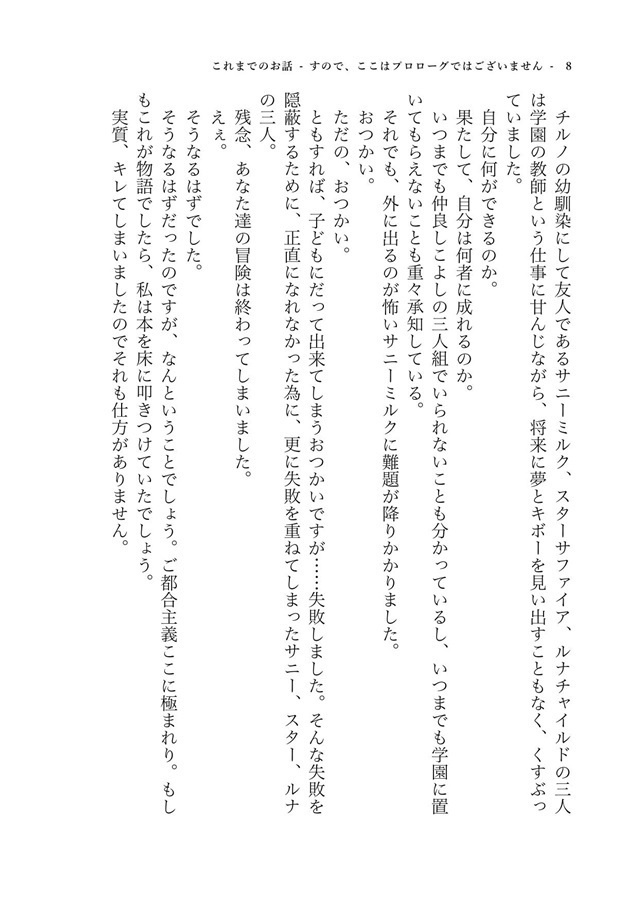 これまでのお話 - すので、ここはプロローグではございません - 8
チルノの幼馴染にして友人であるサニーミルク、スターサファイア、ルナチャイルドの三人
は学園の教師という仕事に甘んじながら、将来に夢とキボーを見い出すこともなく、くすぶっ
ていました。
自分に何ができるのか。
果たして、自分は何者に成れるのか。
いつまでも仲良しこよしの三人組でいられないことも分かっているし、いつまでも学園に置
いてもらえないことも重々承知している。
それでも、外に出るのが怖いサニーミルクに難題が降りかかりました。
おつかい。
ただの、おつかい。
ともすれば、子どもにだって出来てしまうおつかいですが……失敗しました。そんな失敗を
隠蔽するために、正直になれなかった為に、更に失敗を重ねてしまったサニー、スター、ルナ
の三人。
残念、あなた達の冒険は終わってしまいました。
えぇ。
そうなるはずでした。
そうなるはずだったのですが、なんということでしょう。ご都合主義ここに極まれり。もし
もこれが物語でしたら、私は本を床に叩きつけていたでしょう。
実質、キレてしまいましたのでそれも仕方がありません。